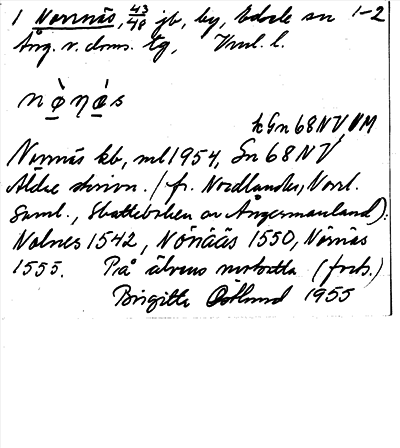 1 Norrnäs, 43/48 jb, by, Edsele sn 1-2
Ång. n. doms. tg, Vnl. l.
nò̠ηá̠s
kGn 68 NV, VM
Norrnäs kb, ml 1954, Gn 68 NV
Äldre skrivn. (fr. Nordlander, Norrl.
Saml., Skatteboken av Ångermanland):
Nolnes 1542, Nönääs 1550, Nörnäs
1555. På älvens nordsida (forts.)
Birgitta Östlund 1955